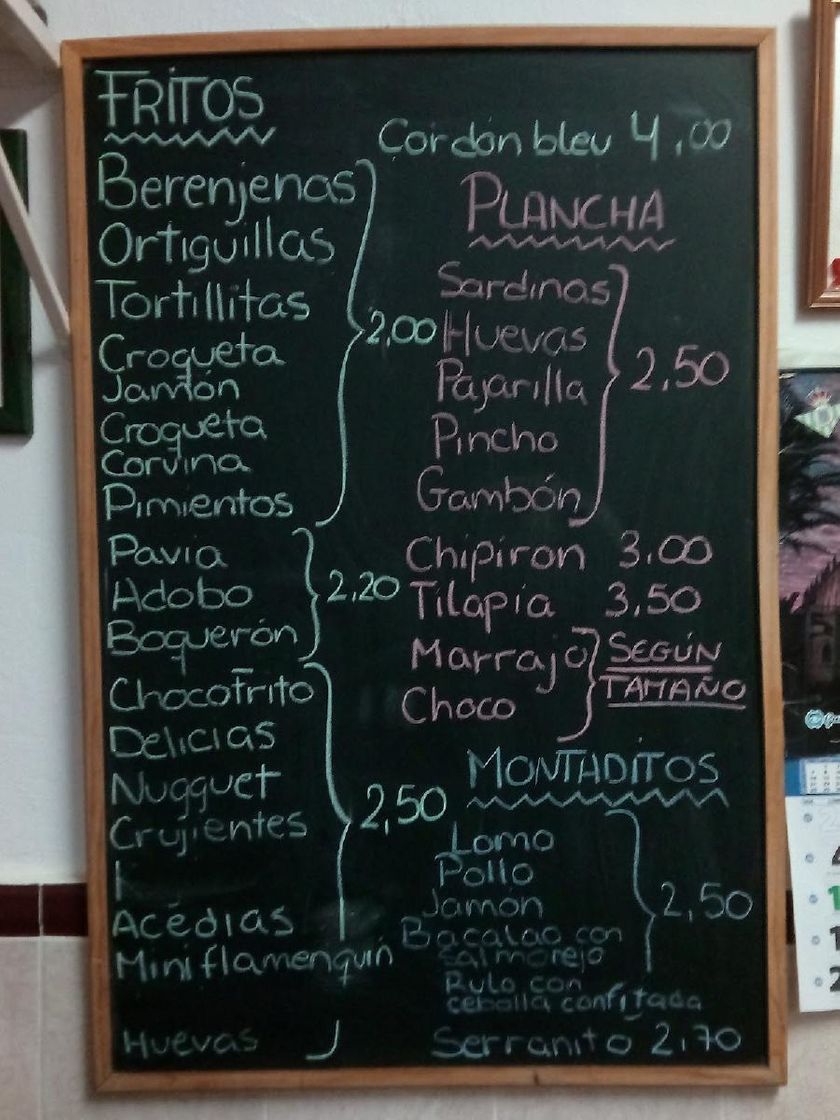 FRITOS
Berenjenas
Ortiguillas
Tortillitas
Croqueta
Jamón
Croqueta
Corvina
Pimientos
2,00
Pavia
Adobo
Boquerón
2,20
Chocofrito
Delicias
Nugguet
Crujientes
Acédias
Miniflamenquín
Huevas
2,50
Cordón bleu 4,00
PLANCHA
Sardinas
Huevas
Pajarilla
Pincho
Gambón
2,50
Chipiron 3,00
Tilapia 3,50
Marrajo
Choco
SEGÚN
TAMAÑO
MONTADITOS
Lomo
Pollo
Jamón
Bacalao con
salmorejo
Rulo con
cebolla confitada
2,50
Serranito 2,70